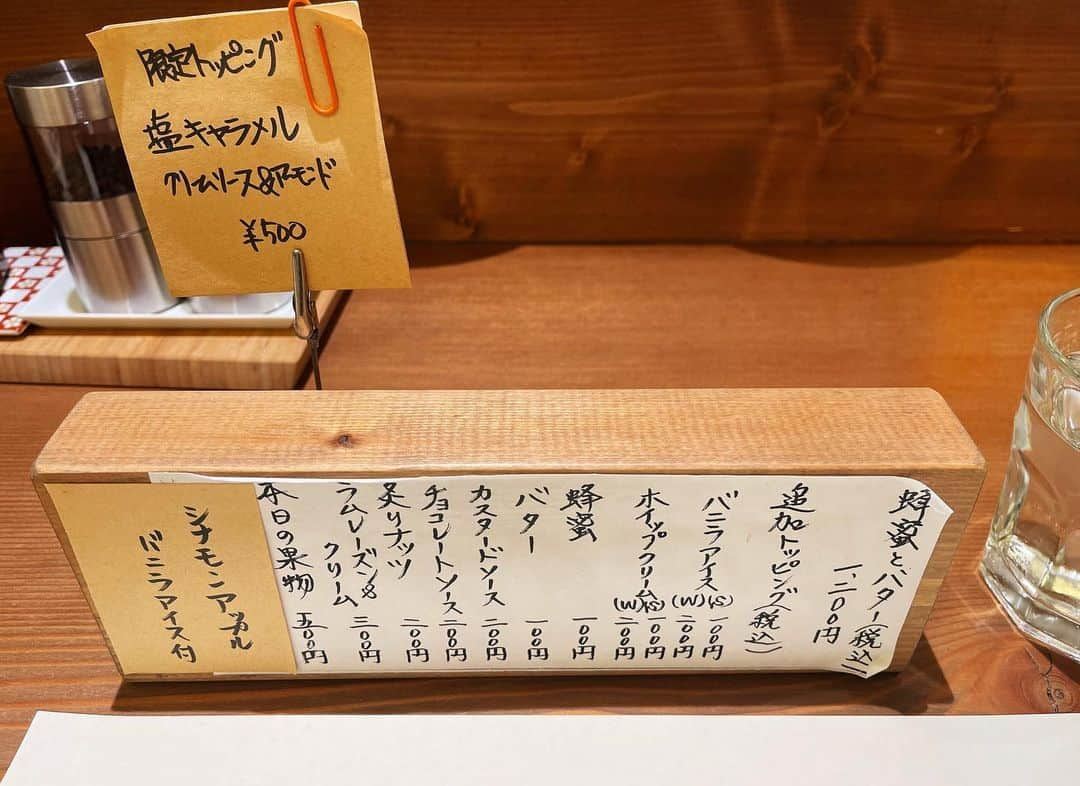 限定トッピング
塩キャラメル
クリームソース&アーモンド
¥500
蜂蜜と、バター(税込)
一、二〇〇円
追加トッピング(税込)
バニラアイス(S)一〇〇円
(W)二〇〇円
ホイップクリーム(S)一〇〇円
(W)二〇〇円
蜂蜜 一〇〇円
バター 一〇〇円
カスタードソース 二〇〇円
チョコレートソース 二〇〇円
炙りナッツ 二〇〇円
ラムレーズン&
クリーム 三〇〇円
本日の果物 五〇〇円
シナモンアップル
バニラアイス付